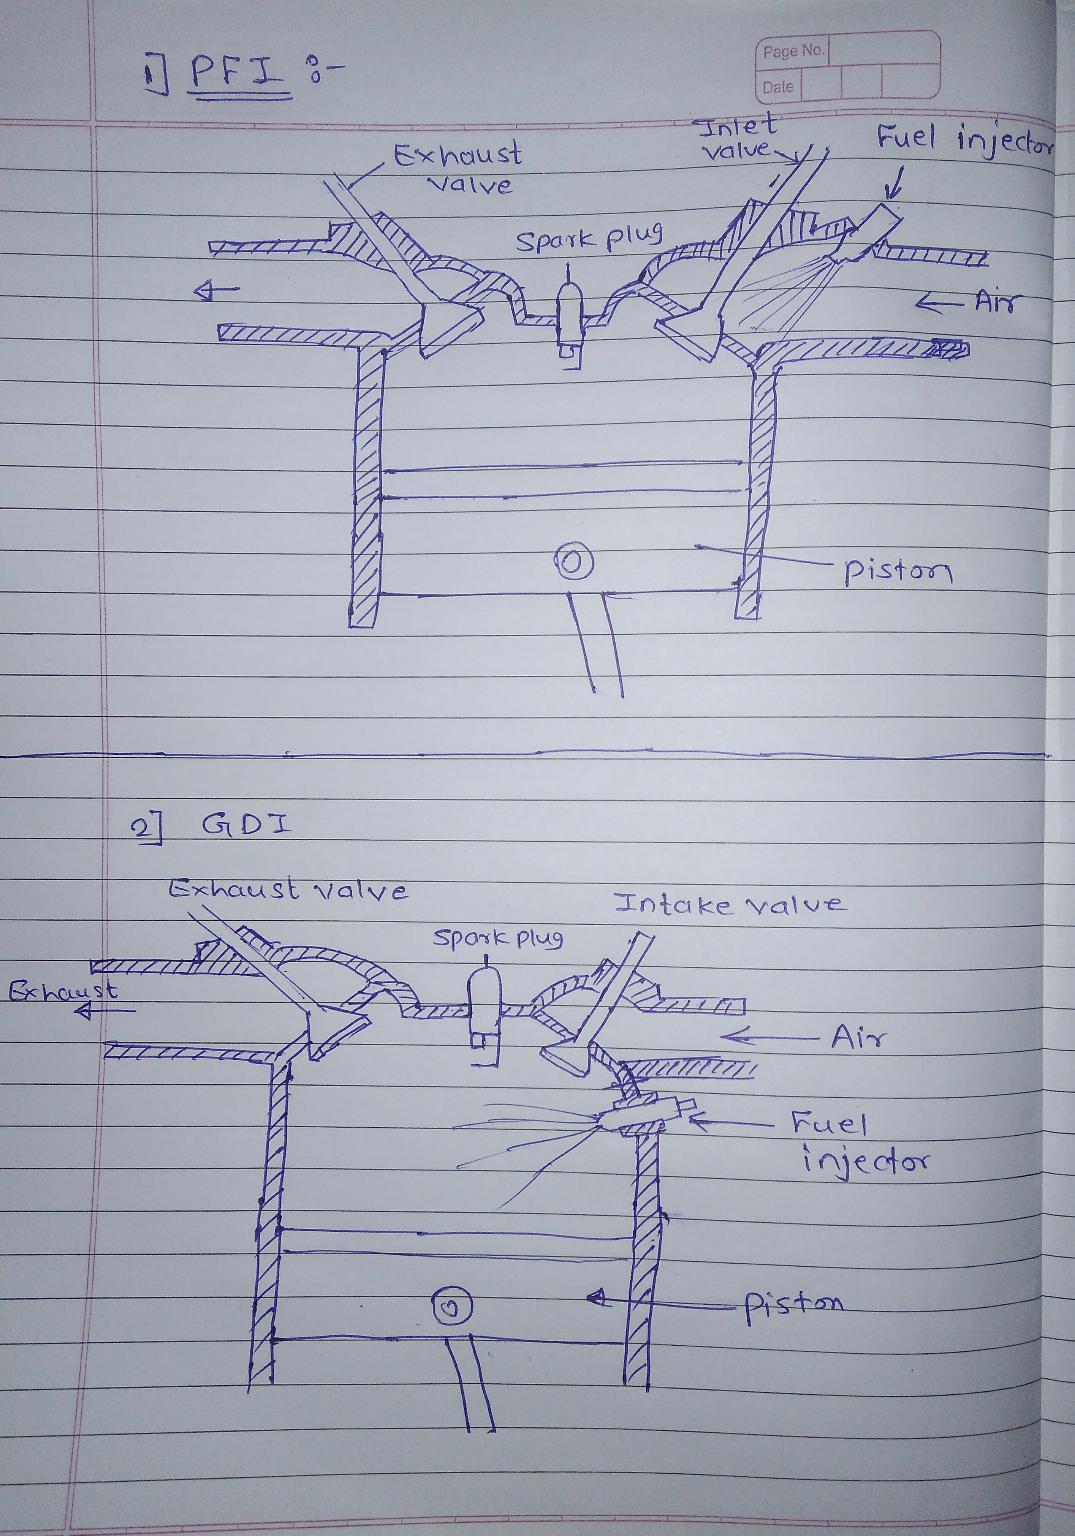 Page No.
Date
1] PFI :-
Exhaust
valve
Inlet
valve
Fuel injector
Spark plug
Air
piston
2] GDI
Exhaust valve
Intake valve
Spark plug
Exhaust
Air
Fuel
injector
piston